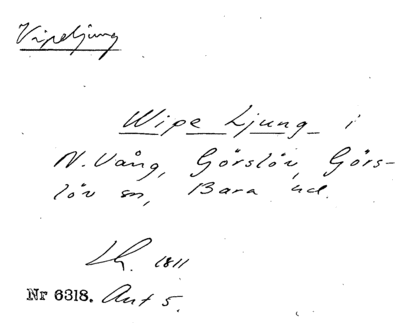 Vipeljung
Wipe Ljung i
N. Vång, Görslöv, Görs-
löv sn, Bara hd.
Lh. 1811
Nr 6318. Ant 5.